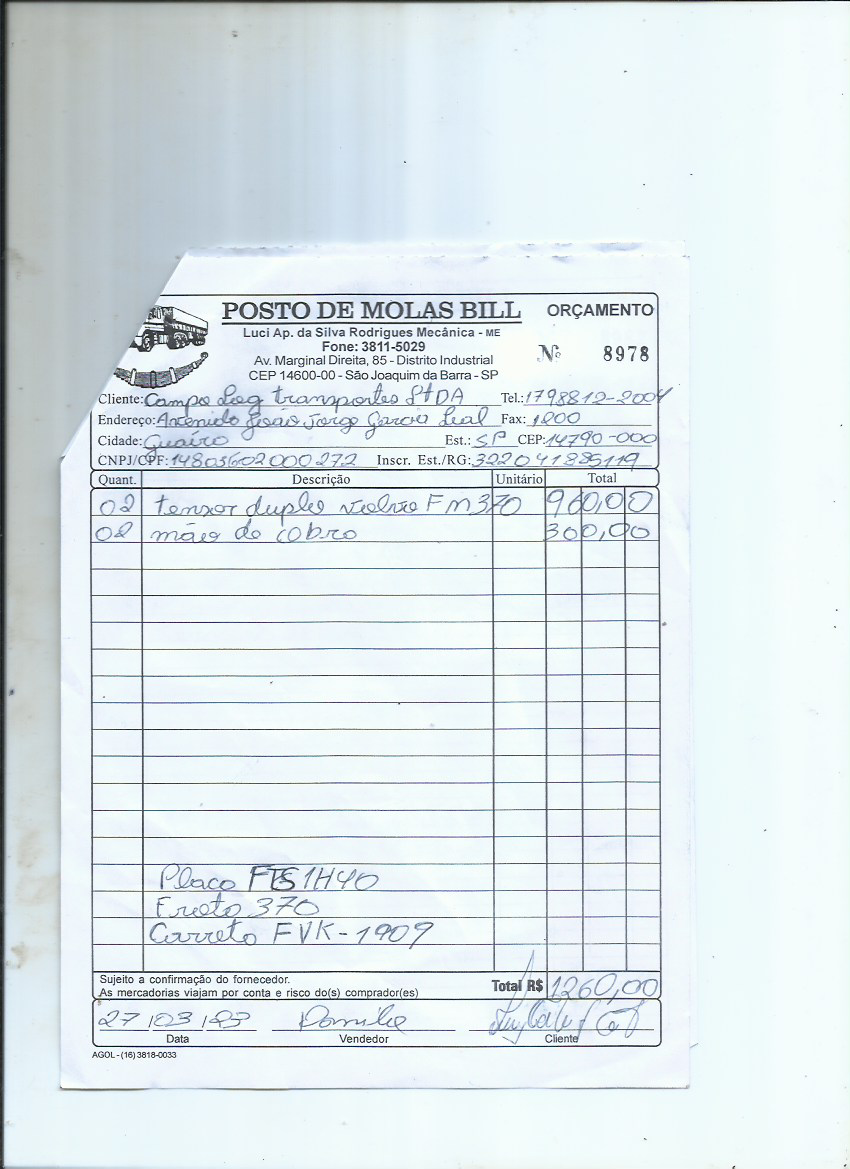 POSTO DE MOLAS BILL ORÇAMENTO
Luci Ap. da Silva Rodrigues Mecânica - ME
Fone: 3811-5029 Nº 8978
Av. Marginal Direita, 85 - Distrito Industrial
CEP 14600-00 - São Joaquim da Barra - SP
Cliente: Campo Log transportes LtDA Tel.: 1798812-2004
Endereço: Avenida João Jorge Garcia Leal Fax: 1200
Cidade: Guaíra Est.: SP CEP: 14790-000
CNPJ/CPF: 14803602000272 Inscr. Est./RG: 322041885119
Quant. Descrição Unitário Total
02 tensor duplo volvo FM370 960,00
02 mão de obra 300,00
Placa FTS1H40
Frota 370
Carreta FVK-1909
Sujeito a confirmação do fornecedor.
As mercadorias viajam por conta e risco do(s) comprador(es) Total R$ 1260,00
27/03/23
Data Vendedor Cliente
AGOL - (16) 3818-0033